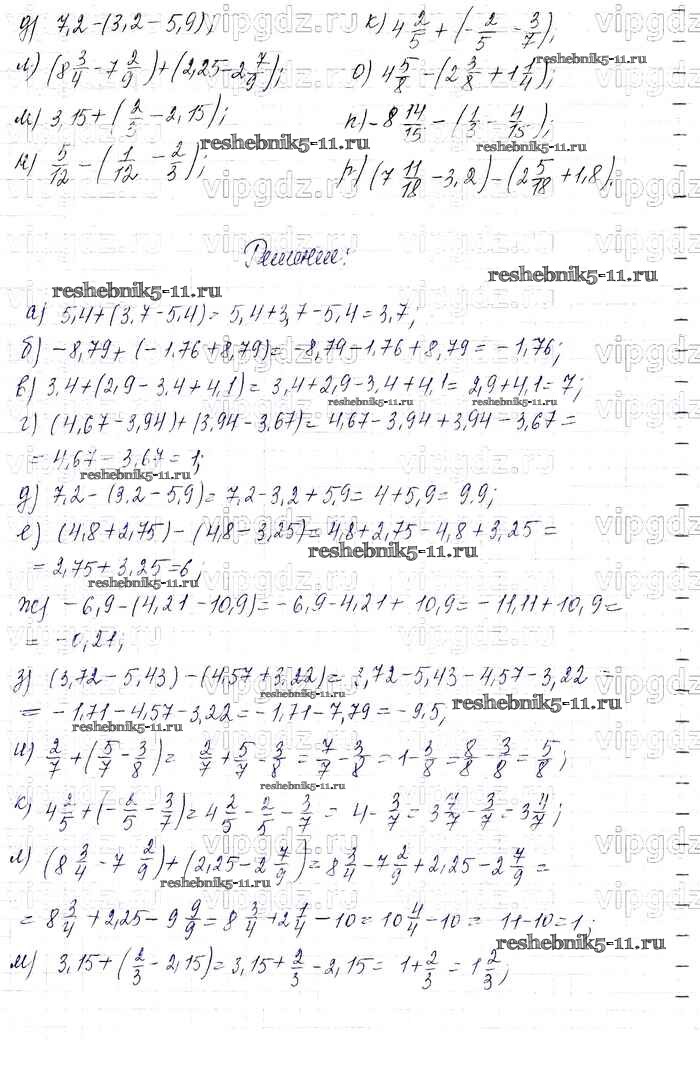 д) 7,2-(3,2-5,9); к) 4 2/5 + (-2/5 - 3/7);
л) (8 3/4 - 7 2/9)+(2,25-2 7/9); о) 4 5/8 - (2 3/8 + 1 1/4);
м) 3,15+(2/3 - 2,15); п) -8 14/15 - (1/3 - 4/15);
reshebnik5-11.ru
н) 5/12 - (1/12 - 2/3); р) (7 11/18 - 3,2) - (2 5/18 + 1,8).
Решение:
reshebnik5-11.ru
reshebnik5-11.ru
а) 5,4+(3,7-5,4)= 5,4+3,7-5,4=3,7;
б) -8,79+(-1,76+8,79)= -8,79-1,76+8,79= -1,76;
в) 3,4+(2,9-3,4+4,1)= 3,4+2,9-3,4+4,1= 2,9+4,1= 7;
reshebnik5-11.ru
г) (4,67-3,94)+(3,94-3,67)= 4,67-3,94+3,94-3,67=
= 4,67-3,67=1;
reshebnik5-11.ru
д) 7,2-(3,2-5,9)= 7,2-3,2+5,9= 4+5,9= 9,9;
е) (4,8+2,75)-(4,8-3,25)= 4,8+2,75-4,8+3,25=
reshebnik5-11.ru
= 2,75+3,25=6;
reshebnik5-11.ru
ж) -6,9-(4,21-10,9)= -6,9-4,21+10,9= -11,11+10,9=
= -0,21;
з) (3,72-5,43)-(4,57+3,22)= 3,72-5,43-4,57-3,22 =
reshebnik5-11.ru
= -1,71-4,57-3,22= -1,71-7,79= -9,5;
reshebnik5-11.ru
reshebnik5-11.ru
и) 2/7+(5/7-3/8)= 2/7+5/7-3/8=7/7-3/8=1-3/8=8/8-3/8=5/8;
reshebnik5-11.ru
к) 4 2/5+(-2/5-3/7)=4 2/5-2/5-3/7= 4-3/7=3 7/7-3/7=3 4/7;
л) (8 3/4-7 2/9)+(2,25-2 7/9)=8 3/4-7 2/9+2,25-2 7/9=
reshebnik5-11.ru
=8 3/4+2,25-9 9/9=8 3/4+2 1/4-10=10 4/4-10= 11-10=1;
reshebnik5-11.ru
м) 3,15+(2/3-2,15)=3,15+2/3-2,15= 1+2/3=1 2/3;